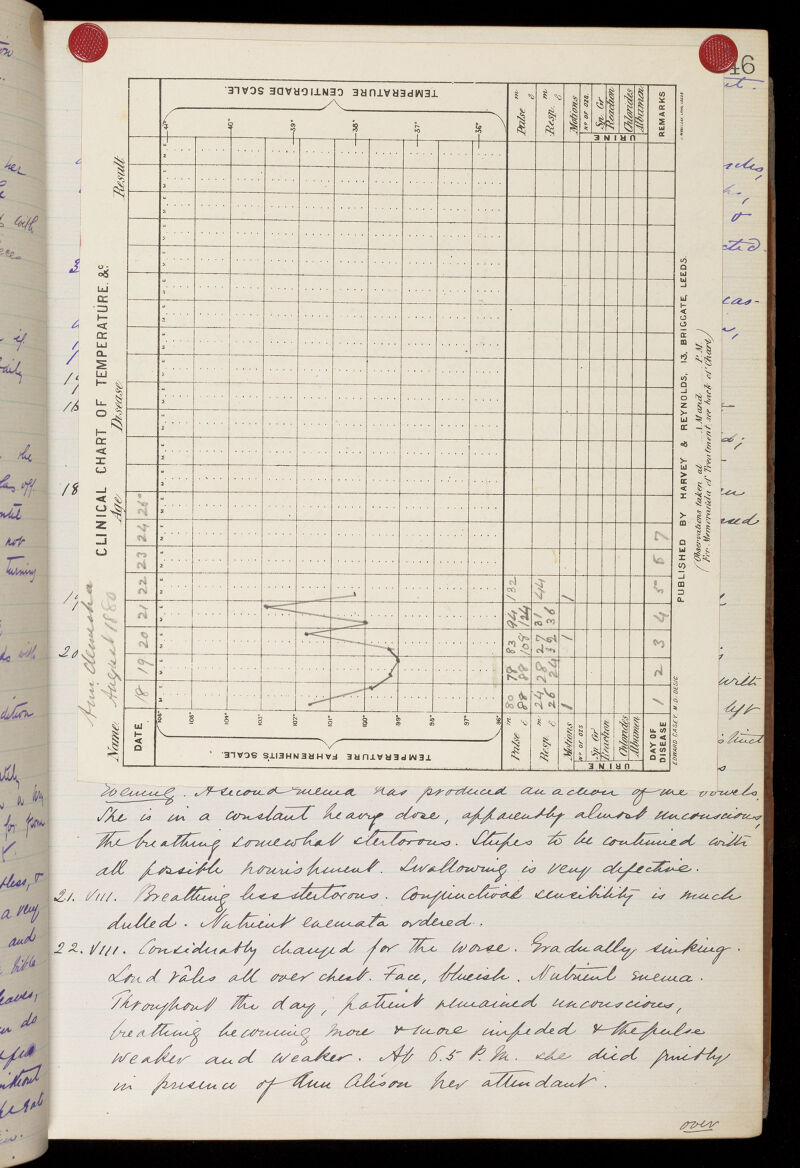 46
Name Ann
August 1880
CLINICAL CHART OF TEMPERATURE. &c.
Age
Disease
Result
DATE 18 19 20 21 22 23 24 25
TEMPERATURE FAHRENHEITS SCALE.
106° 105° 104° 103° 102° 101° 100° 99° 98° 97° 96°
TEMPERATURE CENTIGRADE SCALE.
41° 40° 39° 38° 37° 36°
Pulse m. 80 78 83 94 132
e. 88 88 108 124
Resp. m. 24 28 27 31 44
e. 26 24 32 36
Motions 1 1 1
URINE
No OF OZS
Sp. Gr
Reaction
Chlorides
Albumen
DAY OF DISEASE 1 2 3 4 5 6 7
REMARKS
EDWARD CASEY M.D. DESIG
PUBLISHED BY HARVEY & REYNOLDS, 13, BRIGGATE, LEEDS.
(Observations taken at A.M and P.M
For Memoranda of Treatment see back of Chart)
18
20
Evening. A second enema has produced an action of the bowels.
She is in a constant heavy dose, apparently almost unconscious,
the breathing somewhat stertorous. Stupes to be continued with
all possible nourishment. Swallowing is very defective.
21. VIII. Breathing less stertorous. Conjunctival sensibility is much
dulled. Nutrient enemata ordered.
22. VIII. Considerably changed for the worse. Gradually sinking.
Loud râles all over chest. Face, blueish. Nutrient enema.
Throughout the day, patient remained unconscious,
breathing becoming more & more impeded & the pulse
weaker and weaker. At 6.5 P.M. she died quietly
in presence of Ann Alison her attendant.
over